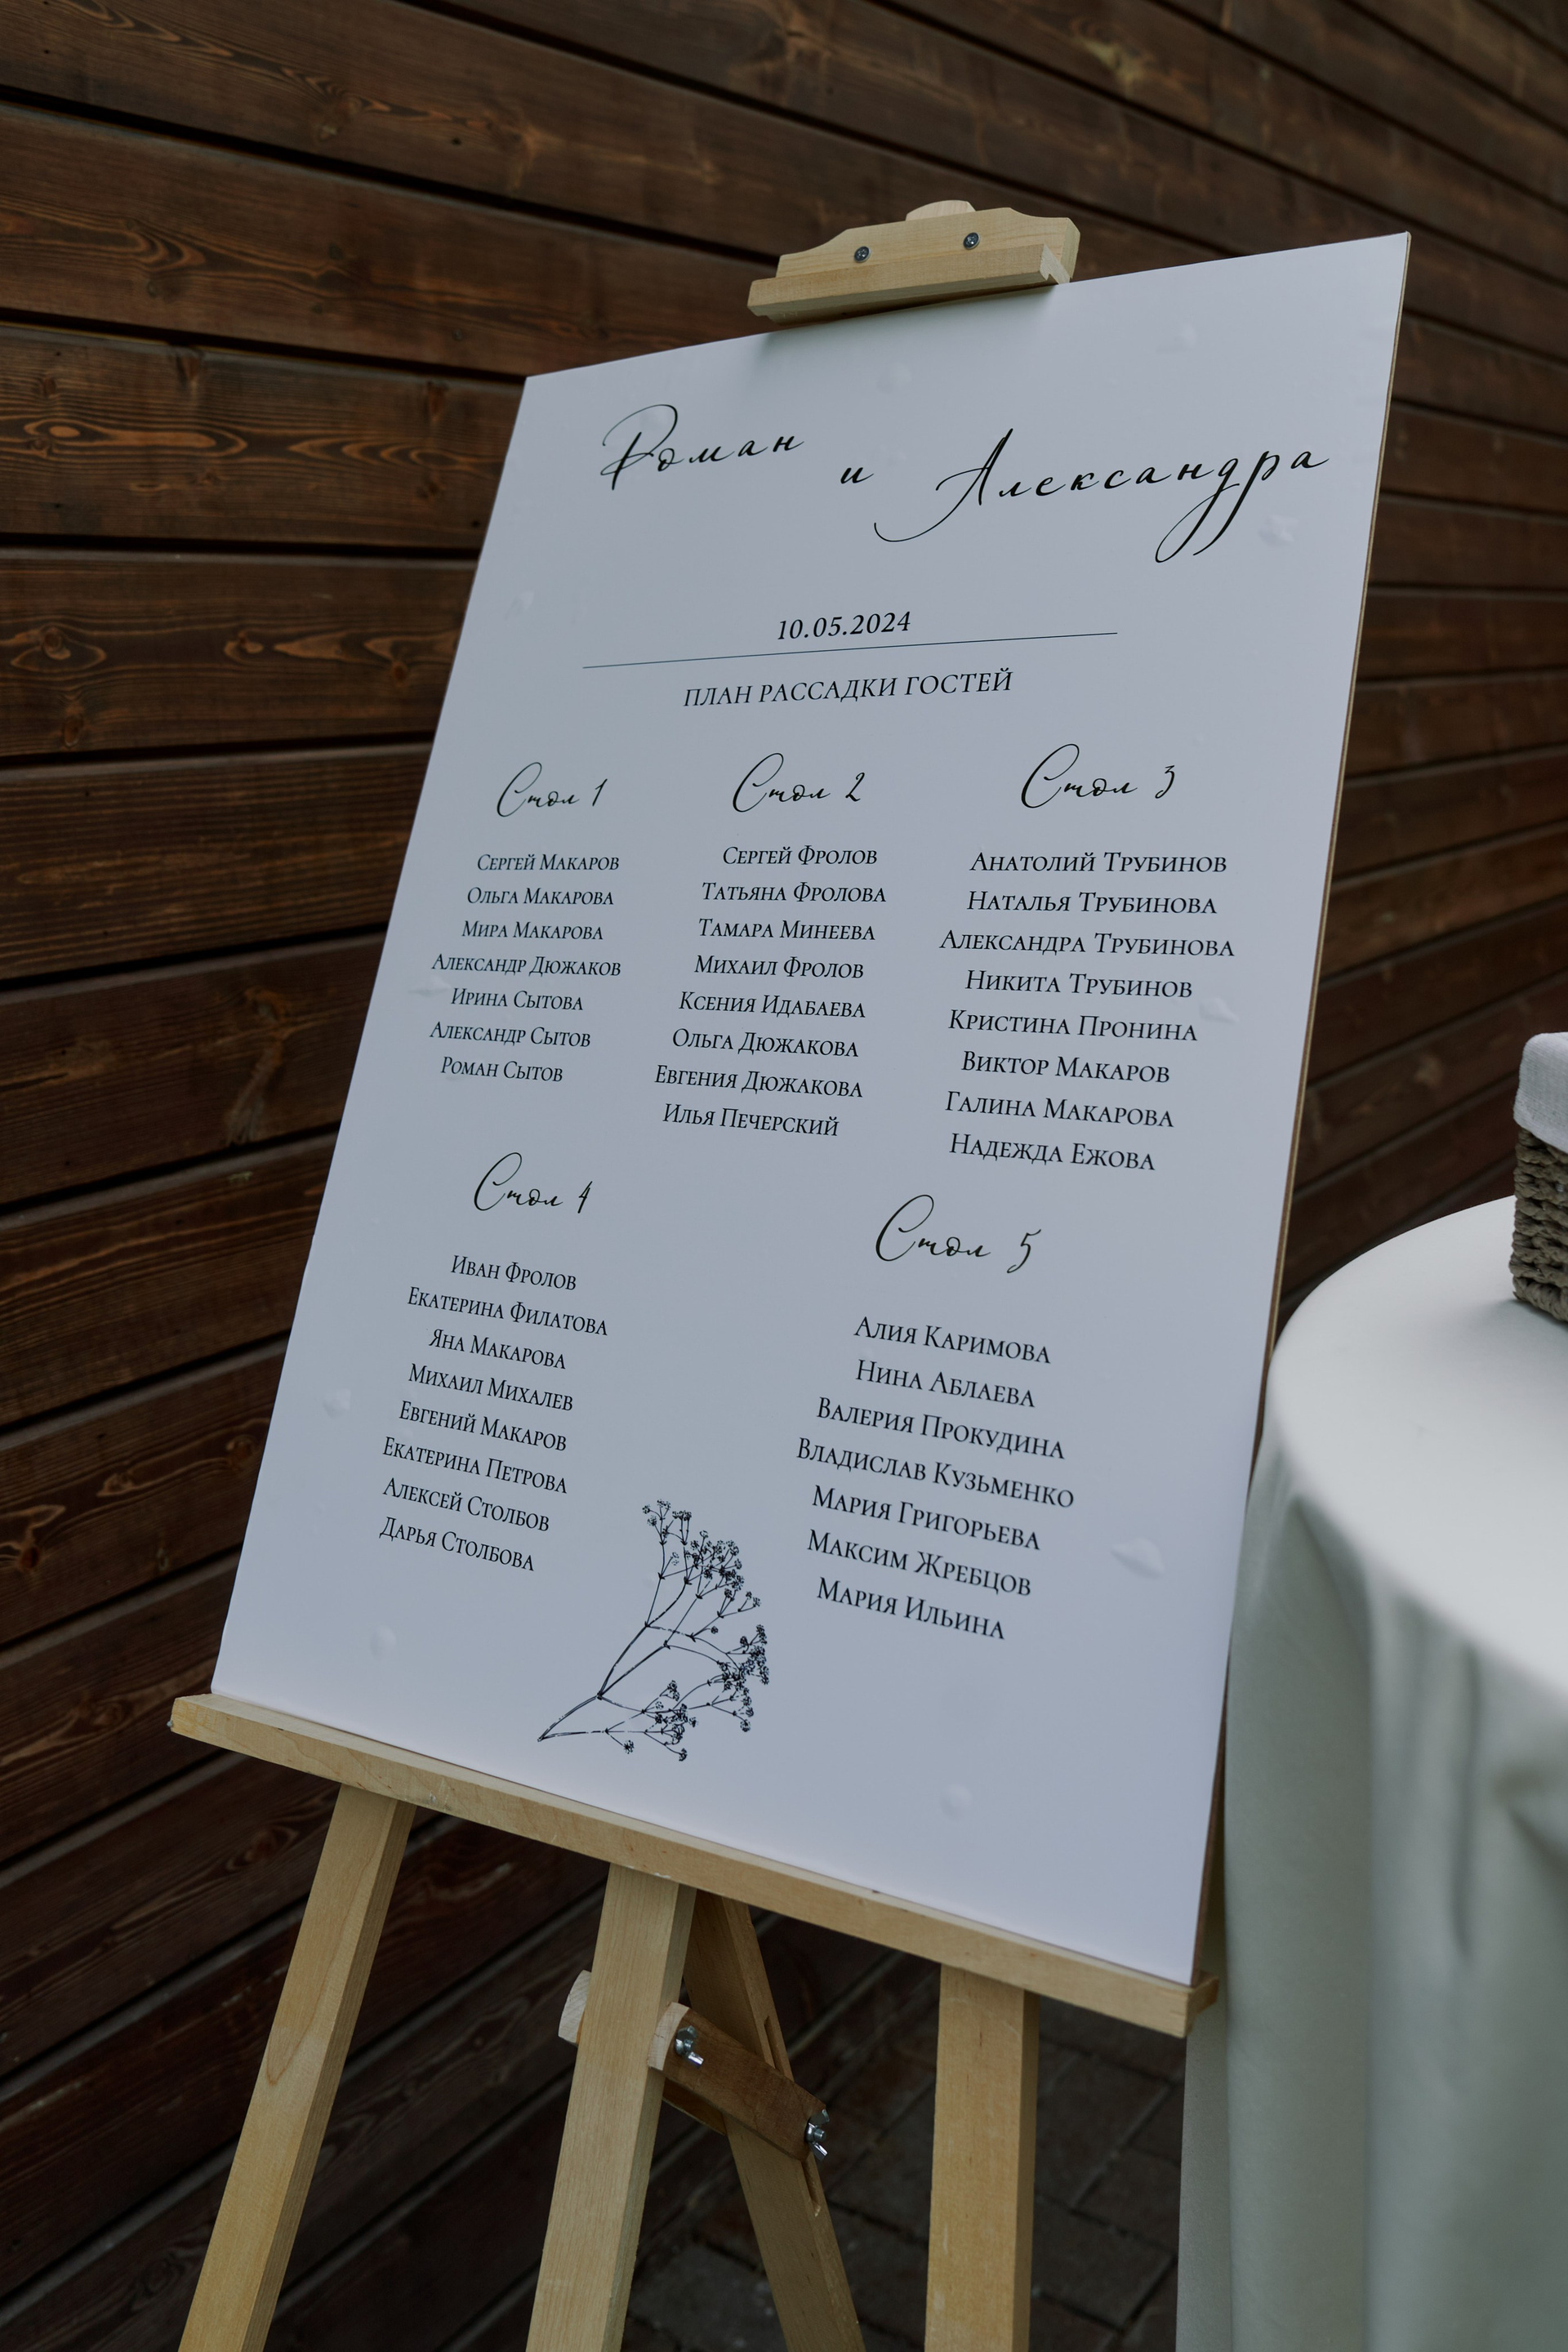 Роман и Александра
10.05.2024
ПЛАН РАССАДКИ ГОСТЕЙ
Стол 1
Сергей Макаров
Ольга Макарова
Мира Макарова
Александр Дюжаков
Ирина Сытова
Александр Сытов
Роман Сытов
Стол 2
Сергей Фролов
Татьяна Фролова
Тамара Минеева
Михаил Фролов
Ксения Идабаева
Ольга Дюжакова
Евгения Дюжакова
Илья Печерский
Стол 3
Анатолий Трубинов
Наталья Трубинова
Александра Трубинова
Никита Трубинов
Кристина Пронина
Виктор Макаров
Галина Макарова
Надежда Ежова
Стол 4
Иван Фролов
Екатерина Филатова
Яна Макарова
Михаил Михалев
Евгений Макаров
Екатерина Петрова
Алексей Столбов
Дарья Столбова
Стол 5
Алия Каримова
Нина Аблаева
Валерия Прокудина
Владислав Кузьменко
Мария Григорьева
Максим Жребцов
Мария Ильина